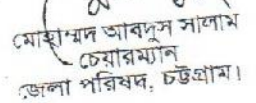 মোহাম্মদ আবদুস সালাম
চেয়ারম্যান
জেলা পরিষদ, চট্টগ্রাম।